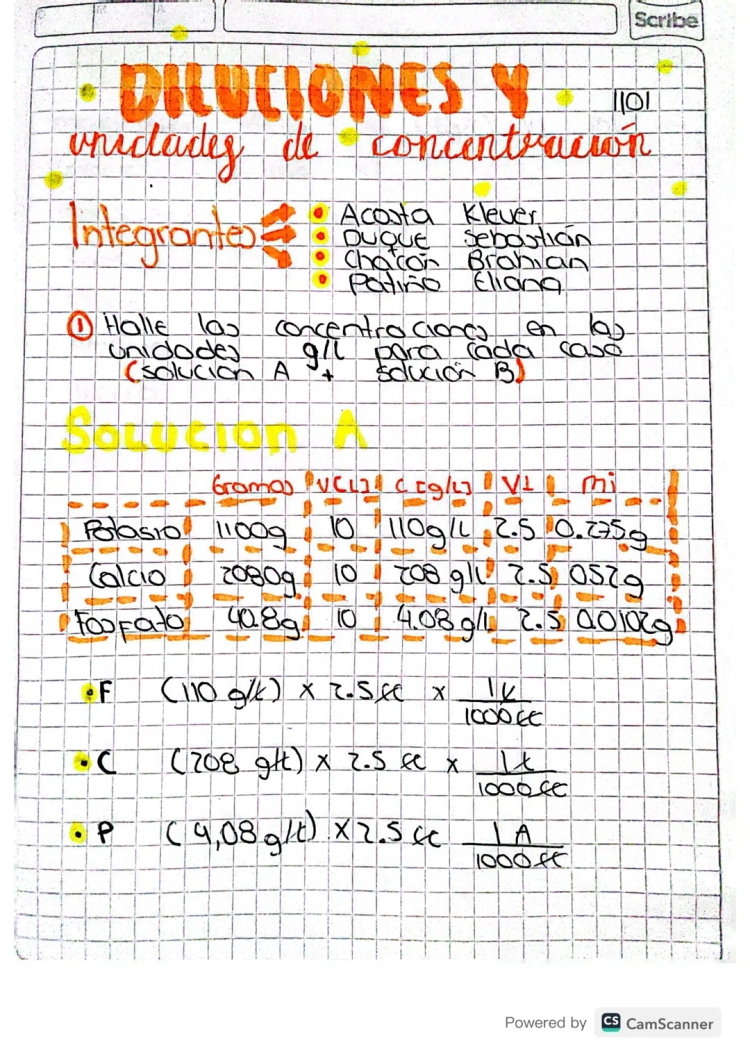 Scribe
DILUCIONES Y
1101
unidades de concentración
Integrantes
Acosta Klever
Duque Sebastián
Chatcón Brahian
Patiño Eliana
① Halle las concentraciones en las
unidades g/L para cada caso
(solución A + solución B)
Solucion A
Gramos V[L] C [g/L] V1 mi
Potasio 1100g 10 110g/L 2.5 0.275g
Calcio 2080g 10 208 g/L 2.5 0.52g
Fosfato 40.8g 10 4.08 g/L 2.5 0.0102g
• F (110 g/L) x 2.5 cc x 1L
1000 cc
• C (208 g/L) x 2.5 cc x 1L
1000 cc
• P (4,08 g/L) x 2.5 cc 1A
1000 cc
Powered by CS CamScanner